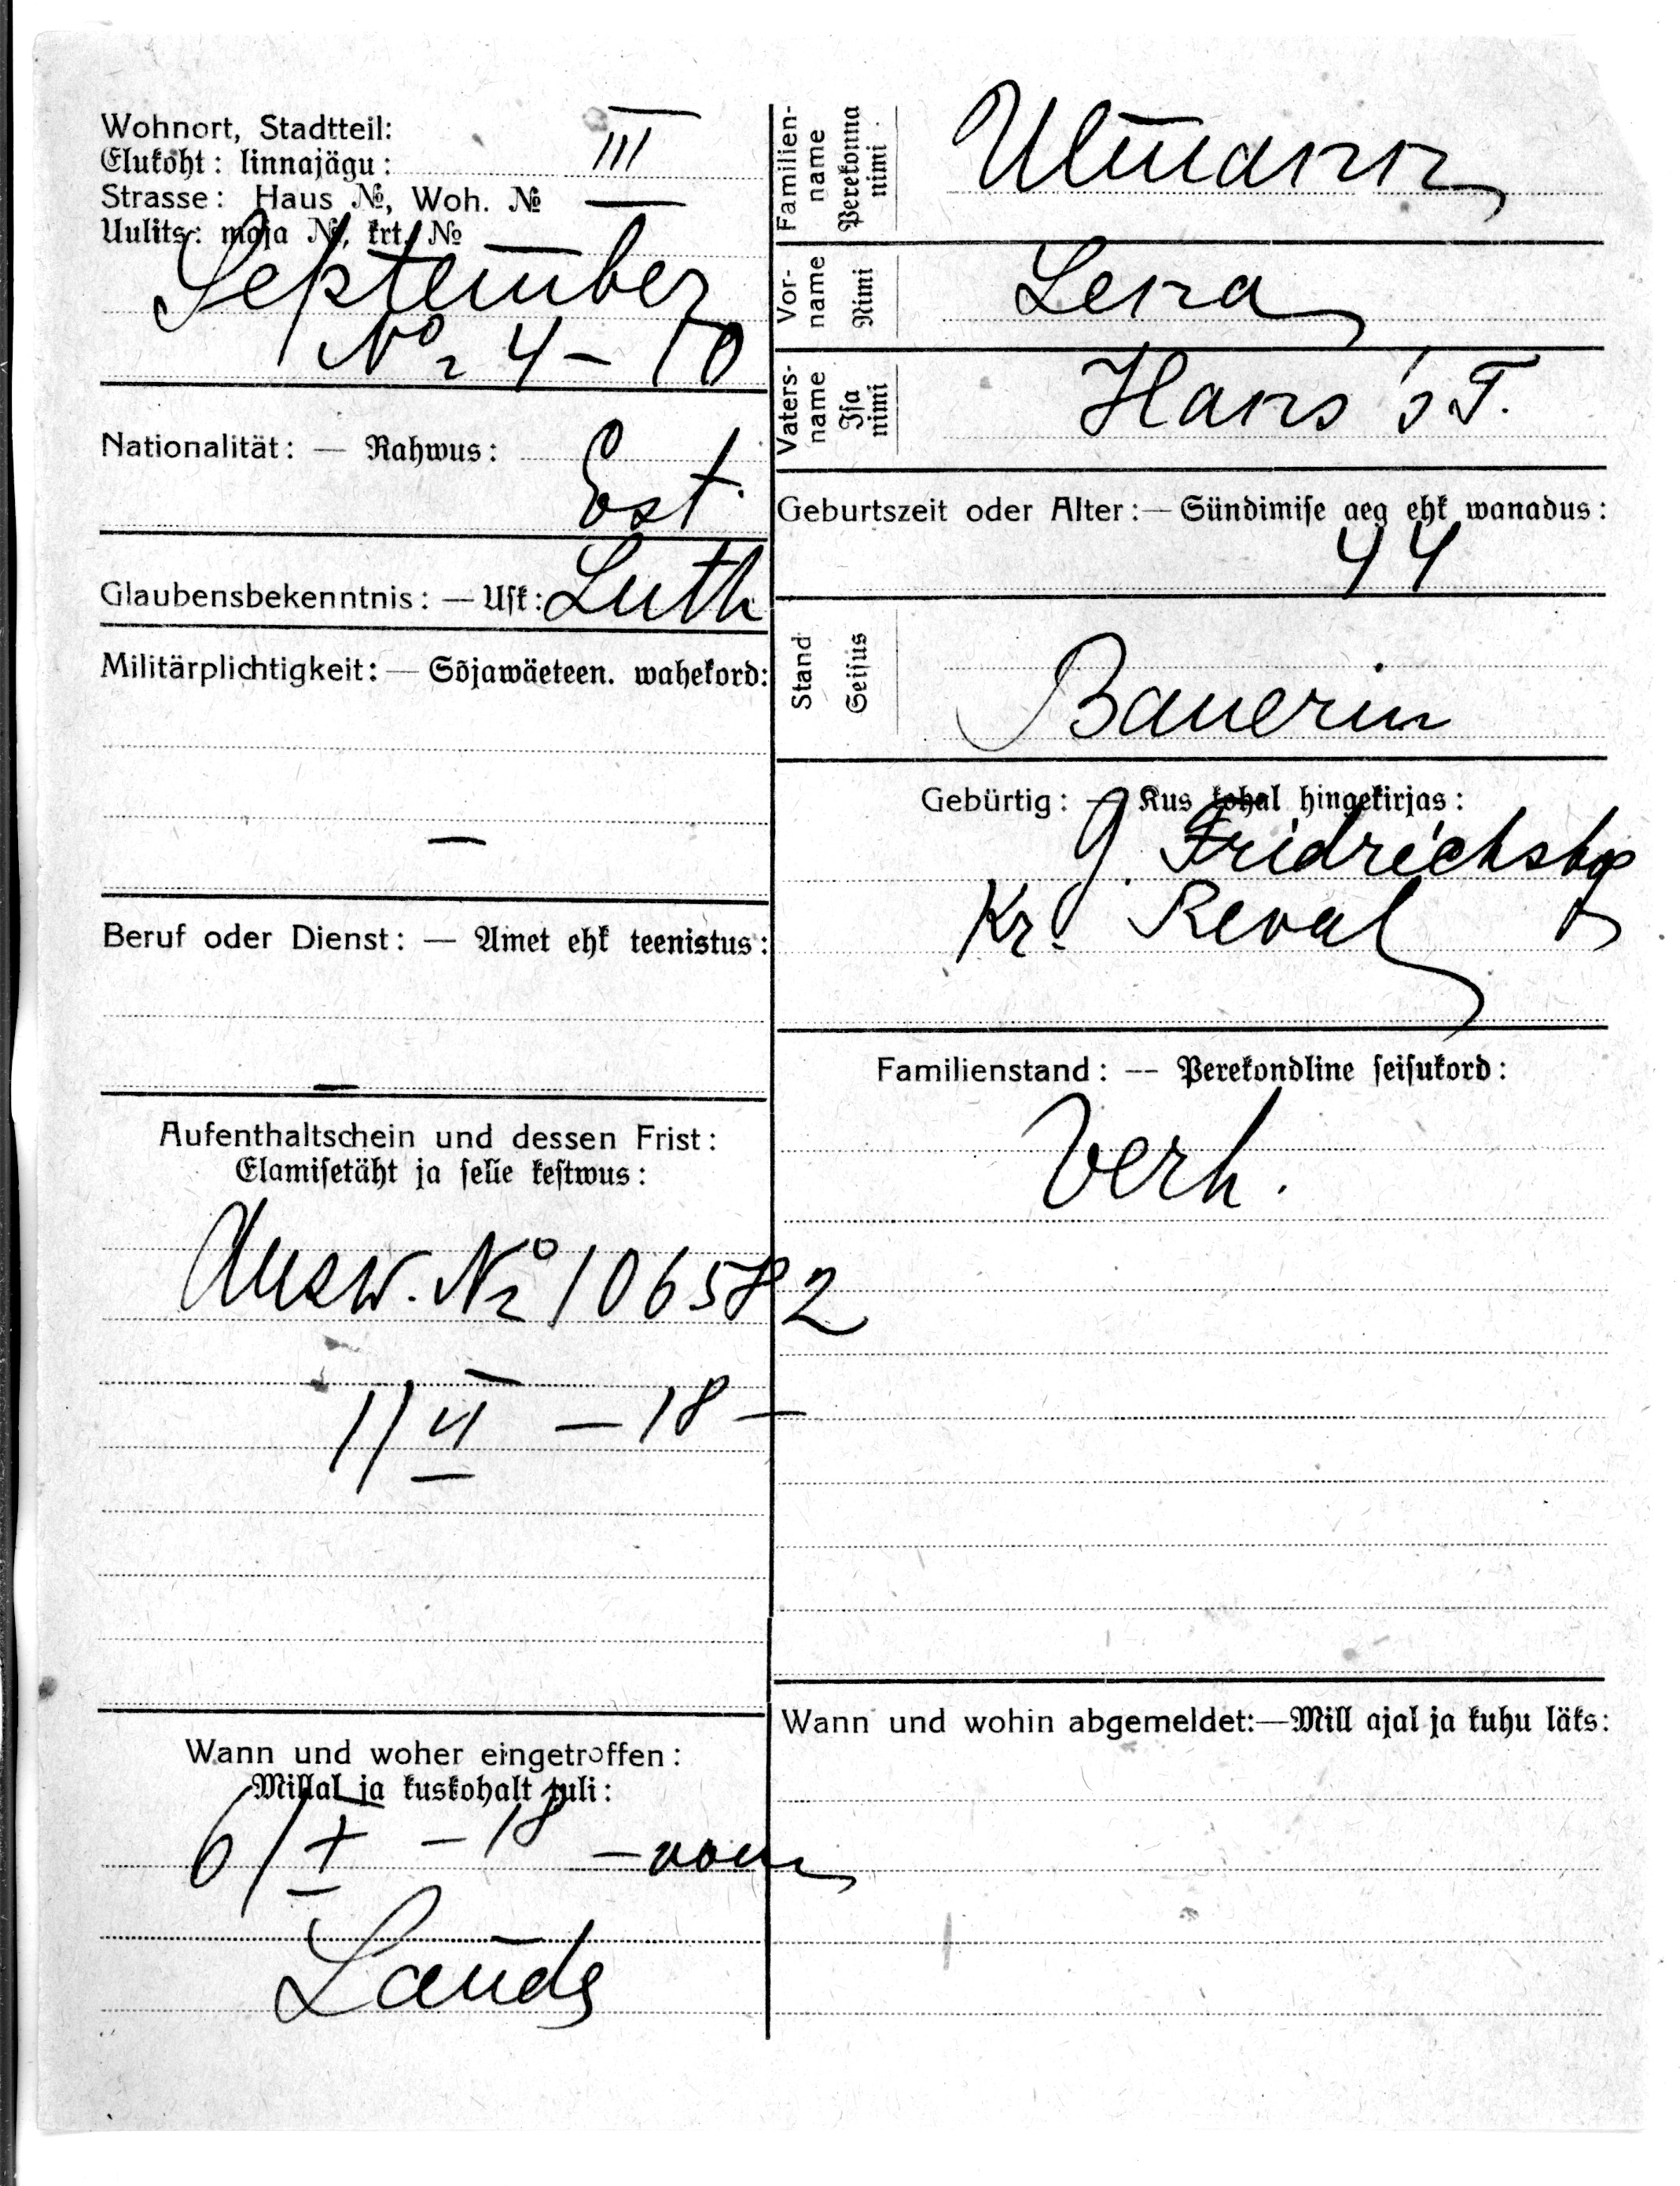 Wohnort, Stadtteil:
Elukoht: linnajägu: III
Strasse: Haus №, Woh. №
Uulits: maja №, krt. №
September
№ 4 – 10
Nationalität: — Rahwus: Est.
Glaubensbekenntnis: — Usk: Luth
Militärplichtigkeit: — Sõjawäeteen. wahekord:
—
Beruf oder Dienst: — Amet ehk teenistus:
—
Aufenthaltschein und dessen Frist:
Elamisetäht ja selle kestwus:
Ausw. № 106582
11/VI – 18 –
Wann und woher eingetroffen:
Millal ja kuskohalt tuli:
6/X – 18 – vom
Lande
Familien-
name
Perekonna
nimi.
Ulmann
Vor-
name
Nimi
Lena
Vaters-
name
Isa
nimi
Hans's T.
Geburtszeit oder Alter: — Sündimise aeg ehk wanadus:
44
Stand
Seisus
Bauerin
Gebürtig: — Kus kohal hingekirjas:
g. Fridrichshof
Kr. Reval
Familienstand: — Perekondline seisukord:
Verh.
Wann und wohin abgemeldet:—Mill ajal ja kuhu läks: